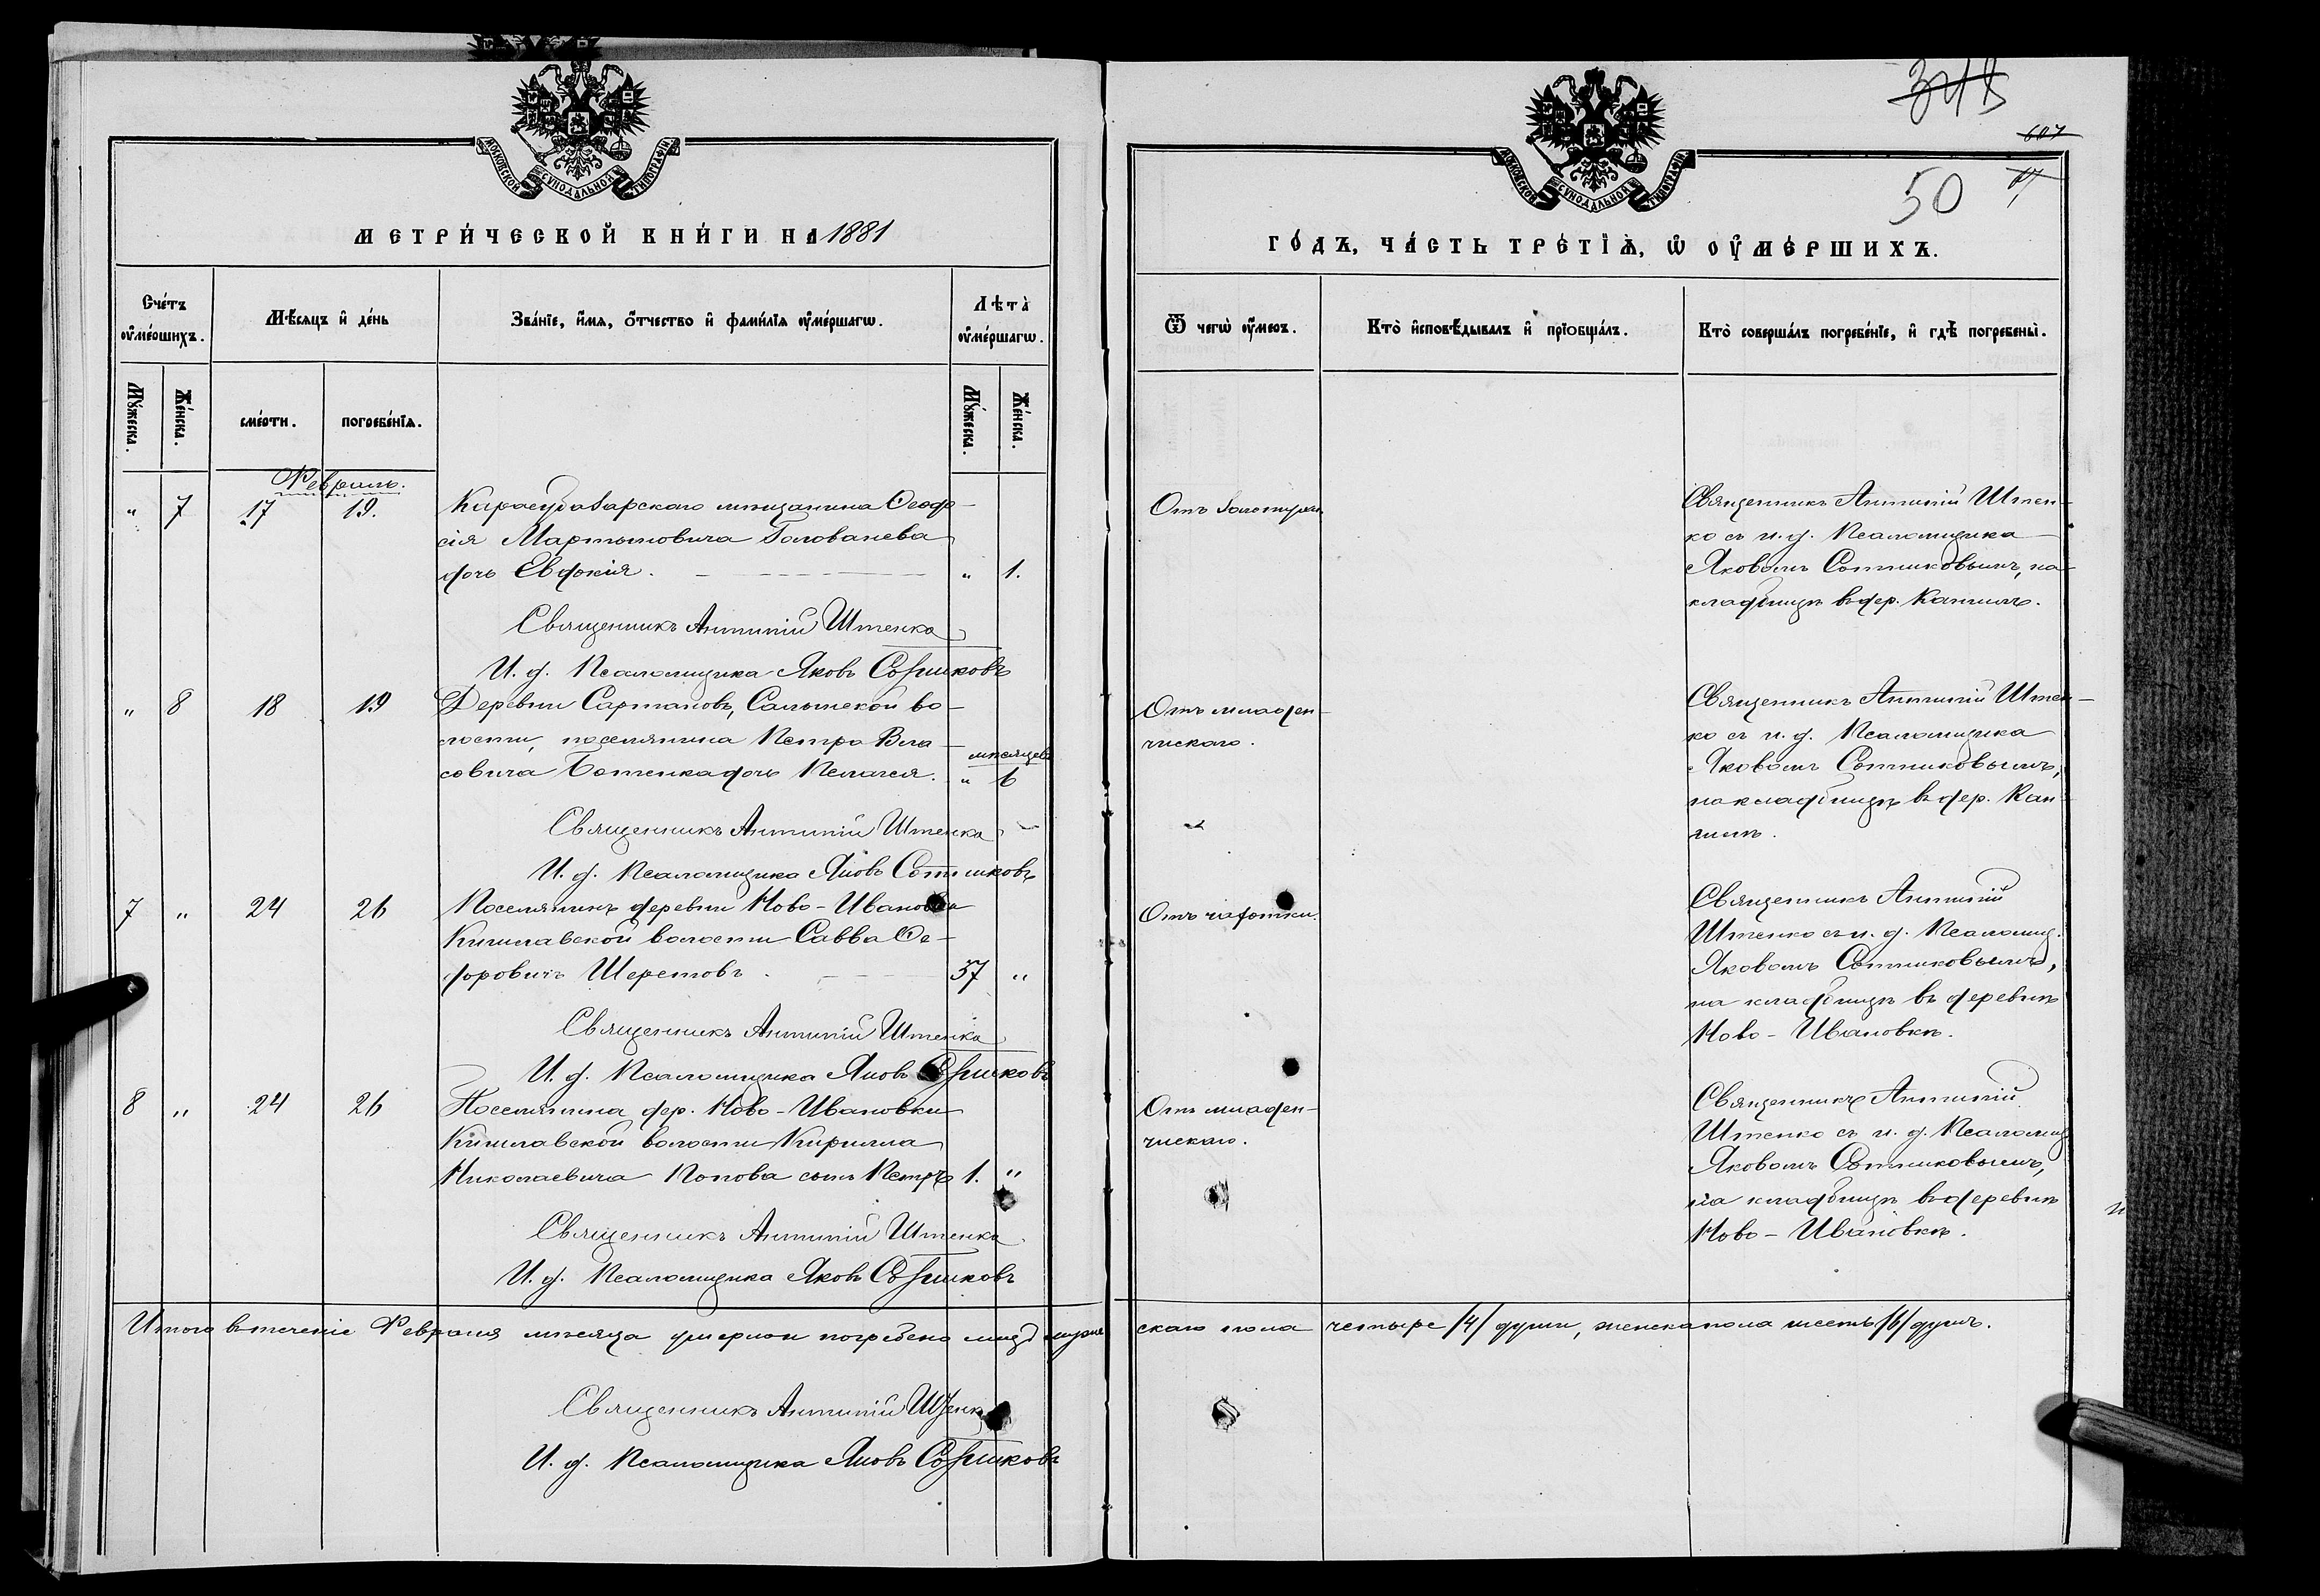 МОСКОВСКОЙ СУНОДАЛЬНОЙ ТИПОГРАФІИ
МЕТРИ́ЧЕСКОЙ КНИ́ГИ НА 1881
Сче́тъ ᲂу҆ме́ршихъ.
Мѣ́сяцъ и҆ де́нь
Зва́нїе, и҆́мѧ, ѻ҆́тчество и҆ фами́лїѧ ᲂу҆ме́ршагѡ.
Лѣта̀ ᲂу҆ме́ршагѡ.
Мꙋ́жеска.
Же́нска.
сме́рти.
погребе́нїѧ.
Мꙋ́жеска.
Же́нска.
Февраль.
" 7 17 19. Карасубазарскаго мѣщанина Ѳеодо-
сія Мартыновича Голованева
дочь Евдокія. " 1.
Священникъ Антипій Штенко
И. д. Псаломщика Яковъ Сотниковъ
" 8 18 19 Деревни Сартановъ, Салынской во-
лости, поселянина Петра Вла-
мѣсяцевъ
совича Ботенка дочь Пелагея. " 6
Священникъ Антипій Штенко
И. д. Псаломщика Яковъ Сотниковъ
7 " 24 26 Поселянинъ деревни Ново-Ивановки
Кишлавской волости Савва Ѳе-
доровичъ Шереметовъ. 37 "
Священникъ Антипій Штенко
И. д. Псаломщика Яковъ Сотниковъ
8 " 24 26 Поселянина дер. Ново-Ивановки
Кишлавской волости Кирилла
Николаевича Попова сынъ Петръ 1. "
Священникъ Антипій Штенко
И. д. Псаломщика Яковъ Сотниковъ
Итого въ теченіе Февраля мѣсяца умерло и погребено лицъ муже
Священникъ Антипій Штенко
И. д. Псаломщика Яковъ Сотниковъ
607
50
МОСКОВСКОЙ СУНОДАЛЬНОЙ ТИПОГРАФІИ
ГО́ДЪ, ЧА́СТЬ ТРЕ́ТЇѦ, Ѡ҆ ОУ҆МЕ́РШИХЪ.
Ѿ чегѡ̀ ᲂу҆́меръ.
Кто̀ и҆сповѣ́дывалъ и҆ прїѻбща́лъ.
Кто̀ соверша́лъ погребе́нїе, и҆ гдѣ̀ погребены̀.
Отъ золотухи
Священникъ Антипій Штен-
ко съ и. д. Псаломщика
Яковомъ Сотниковымъ, на
кладбищѣ въ дер. Капчикъ.
Отъ младен-
ческаго.
Священникъ Антипій Штен-
ко съ и. д. Псаломщика
Яковомъ Сотниковымъ,
на кладбищѣ въ дер. Кап-
чикъ.
Отъ чахотки.
Священникъ Антипій
Штенко съ и. д. Псаломщ.
Яковомъ Сотниковымъ,
на кладбищѣ въ деревнѣ
Ново-Ивановкѣ.
Отъ младен-
ческаго.
Священникъ Антипій
Штенко съ и. д. Псаломщ
Яковомъ Сотниковымъ,
на кладбищѣ въ деревнѣ
Ново-Ивановкѣ.
скаго пола четыре /4/ души, женска пола шесть /6/ душъ.